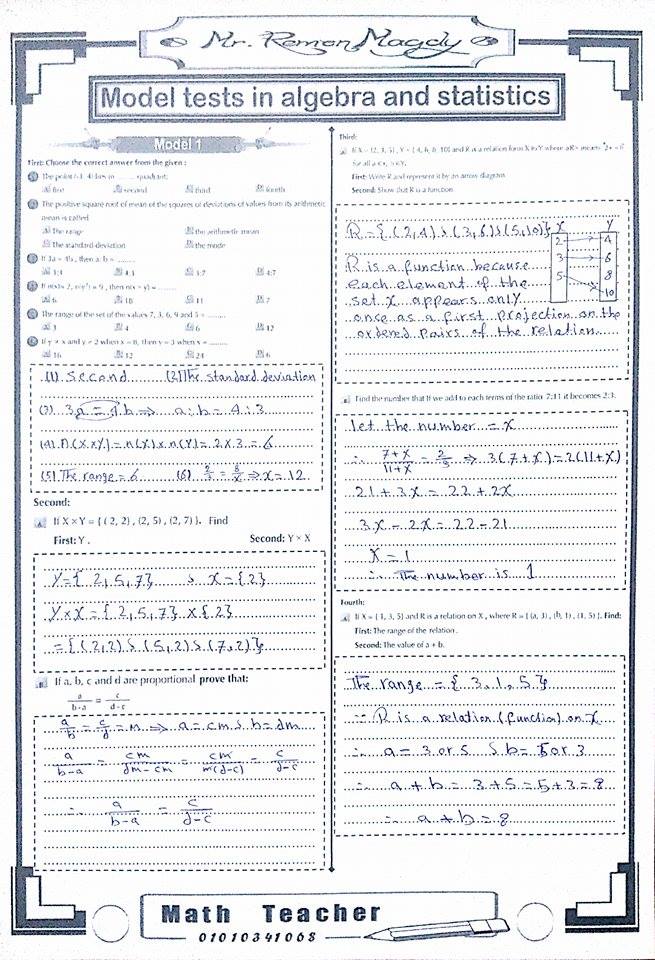 Mr. Romon Magdy
Model tests in algebra and statistics
Model 1
First: Choose the correct answer from the given :
quadrant:
first second third fourth
The positive square root of mean of the squares of deviations of values from its arithmetic
mean is called
the range the arithmetic mean
the standard deviation the mode
If 3a = 4b , then a : b =
3:4 4:3 3:7 4:7
6 18 11 7
The range of the set of the values 7, 3, 6, 9 and 5 =
3 4 6 12
If y × x and y = 2 when x = 8, then y = 3 when x =
16 12 24 6
(1) Second (2) The standard deviation
(3) 3a = 4b ⇒ a:b = 4:3
(4) n(X×Y) = n(X) × n(Y) = 2 × 3 = 6
(5) The range = 6 (6) 2/3 = 8/x ⇒ x = 12
Second:
If X × Y = { ( 2, 2) , (2, 5) , (2, 7) }. Find
First: Y . Second: Y × X
Y = { 2, 5, 7} , X = {2}
Y×X = { 2, 5, 7} × {2}
= { (2,2) , (5,2) , (7,2)}
If a, b, c and d are proportional prove that:
a/b-a = c/d-c
a/b = c/d = m ⇒ a = cm , b = dm
a/b-a = cm/dm-cm = cm/m(d-c) = c/d-c
∴ a/b-a = c/d-c
Third:
for all
First: Write R and represent it by an arrow diagram.
Second: Show that R is a function.
R = { (2,4) , (3,6) , (5,10)} X Y
2 4
3 6
5 8
10
R is a function because
each element of the
set X appears only
once as a first projection on the
ordered pairs of the relation.
Find the number that If we add to each terms of the ratio 7:11 it becomes 2:3.
let the number = X
∴ 7+X/11+X = 2/3 ⇒ 3(7+X) = 2(11+X)
21 + 3X = 22 + 2X
3X - 2X = 22 - 21
X = 1
∴ The number is 1
Fourth:
If X = { 3, 5} and R is a relation on X , where R = { (a, 3) , (b, 1) , (1, 5) }. Find:
First: The range of the relation .
Second: The value of a + b .
The range = { 3, 1, 5 }
∵ R is a relation (function) on X
∴ a = 3 or 5 , b = 5 or 3
∴ a + b = 3 + 5 = 5 + 3 = 8
∴ a + b = 8
Math Teacher
01010341068